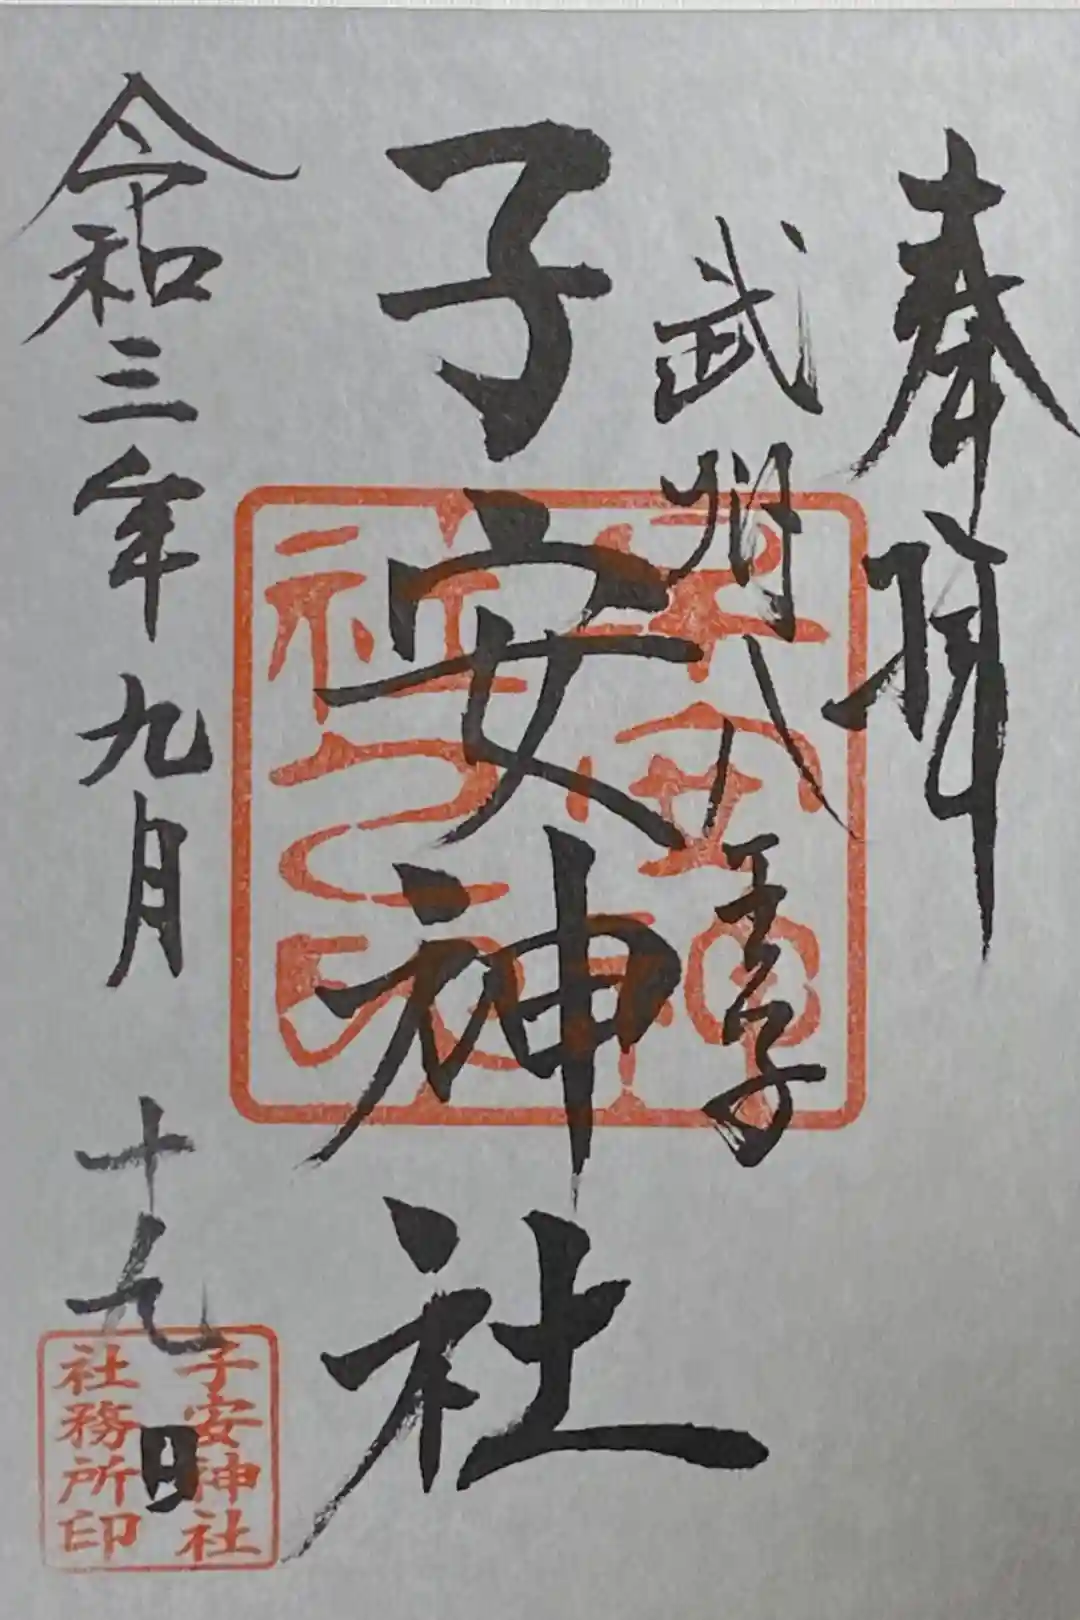 奉拝
武州八王子
子安神社
令和三年九月十九日
子安神社
社務所印
子安神
社之印